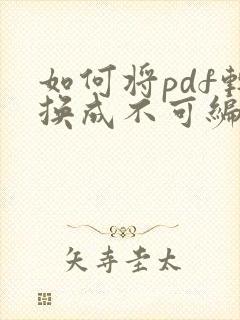 如何将pdf转
换成不可编
矢寺圭太